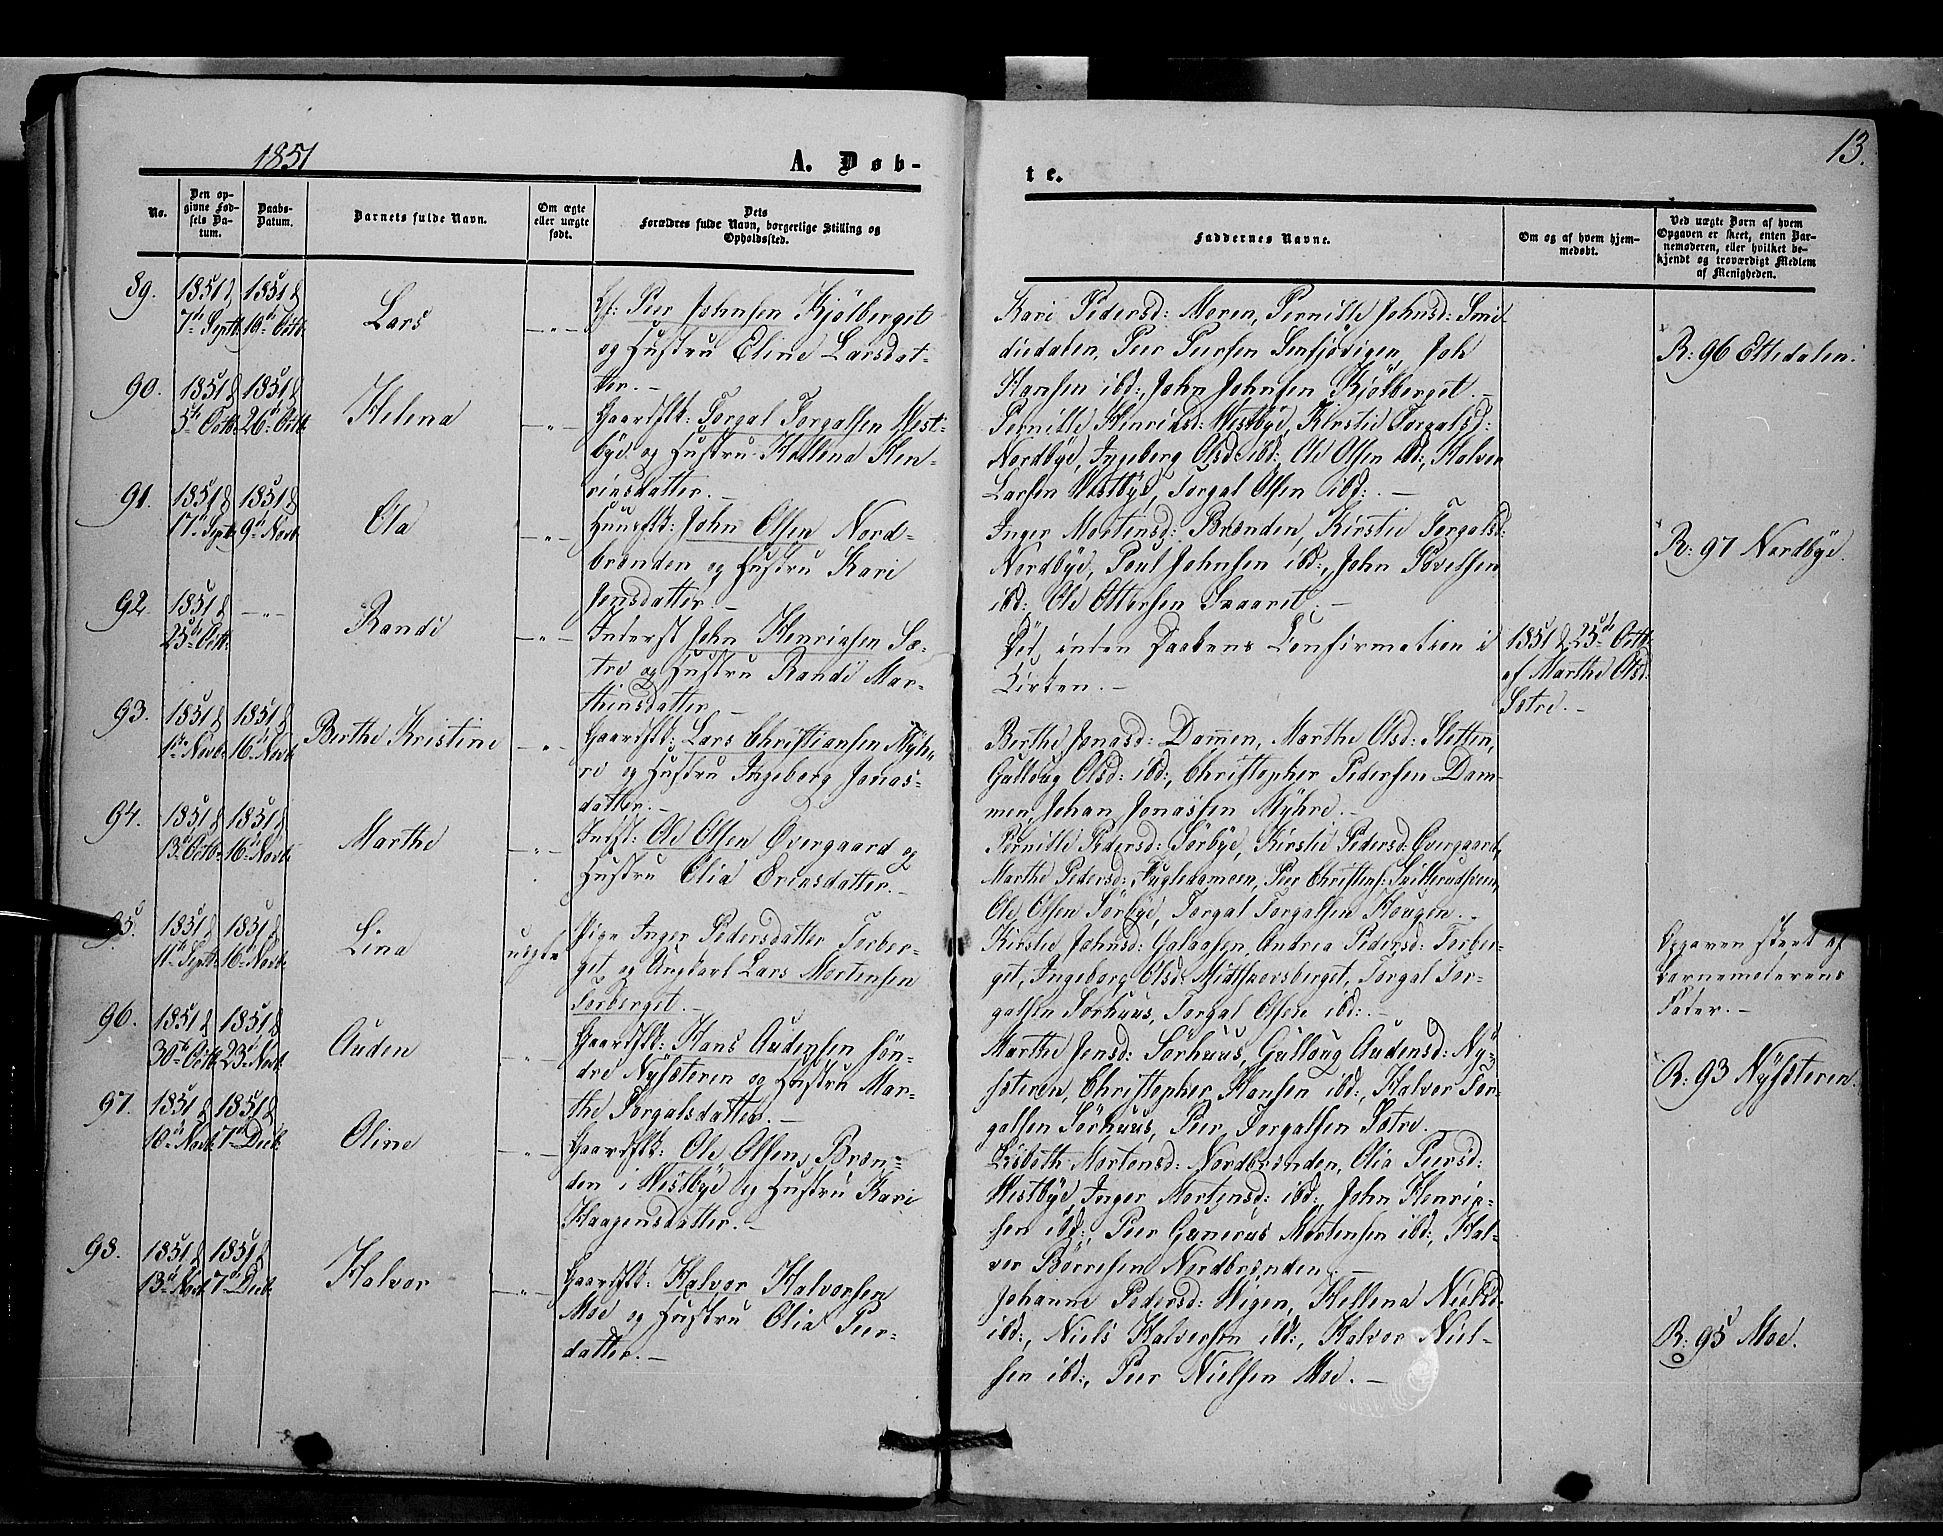 1851
A. Døb-
te.
13.
No.
Den op-
givne Fød-
sels Da-
tum.
Daabs-
Datum.
Barnets fulde Navn.
Om ægte
eller uægte
født.
Dets
Forældres fulde Navn, borgerlige Stilling og
Opholdssted.
Faddernes Navne.
Om og af hvem hjem-
medøbt.
Ved uægte Børn af hvem
Opgaven er skeet, enten Bar-
nemoderen, eller hvilket be-
kjendt og troværdigt Medlem
af Menigheden.
89.
1851 d 1851 d
7de Septb. Octb.
Lars
Peer Johnsen Kjölberget
og Hustru Eline Larsdat-
ter.-
Kari Pedersd: Moren, Pernille Johnsd: Smi-
diedalen, Peer Peersen
Hansen ibd:, John Johnsen Kjölberget.-
R: 96 Ottedalen.
90.
1851 d 1851 d
5te Octb. 26de Octb.
Helena
Gaardsk: Torgal Torgalsen West-
bye og Hustru Hellena Hen-
ricsdatter.-
Pernille Henricsd: Westbye, Kirstie Torgalsd:
Nordbye, Ingeberg Olsd: ibd:, Ole Olsen ibd:, Halvor
Larsen Westbye, Torgal Olsen ibd:.-
91.
1851 d 1851 d
17de Septb. 9de Novb.
Ola
John Olsen Nord-
brenden og Hustru Kari
Jensdatter.-
Inger Mortensd: Brænden, Kirstie Torgalsd:
Nordbye, Poul Johnsen ibd:, John Povelsen
ibd:, Ole Ottersen
R: 97 Nordbye.
92.
1851 d
25de Octb.
Randi
Inderst John Henricsen Sæ-
tre og Hustru Randi Mar-
thinsdatter.-
Död inden Daabens Confirmation i
Kirken.-
1851 d. 25de Octb.
af Marthe Olsd.
Sætre.-
93.
1851 d 1851 d
1ste Novb. 16de Novb.
Berthe Kristine
Gaardsk: Lars Christiansen Myh-
re og Hustru Ingeborg Jonas-
datter.-
Berthe Jonasd: Dammen, Marthe Olsd: Sletten,
Gulloug Olsd: ibd:, Christopher Pedersen Dam-
men, Johan Jonassen Myhre.-
94.
1851 d 1851 d
13de Octb. 16de Novb.
Marthe
Ole Olsen Overgaard og
Hustru Olia Ericsdatter.-
Pernille Pedersd: Sørbye, Kirstie Pedersd: Overgaard,
Marthe Pedersd: Fugledammen, Peer Christens:
Ole Olsen Sørbye, Torgal Torgalsen Haugen.-
95.
1851 d 1851 d
11te Septb. 16de Novb.
Lina
uægte
Pige Inger Pedersdatter Torber-
get og Ungkarl Lars Mortensen
Torberget.-
Kirstie Johnsd: Galaasen, Andrea Pedersd: Torber-
get, Ingeborg Olsd: Midtskovsberget, Torgal Tor-
galsen Sørhuus, Torgal Olsen ibd:.-
Opgaven skeet af
Barnemoderens
Fader.-
96.
1851 d 1851 d
30te Octb. 23de Novb.
Auden
Gaardsk: Hans Audensen søn-
dre Nysæteren og Hustru Mar-
the Torgalsdatter.-
Marthe Jensd: Sørhuus, Gulloug Audensd: Ny-
sæteren, Christopher Hansen ibd:, Halvor Tor-
galsen Sørhuus, Peer Torgalsen Sætre.
R: 93 Nysæteren.
97.
1851 d 1851 d
Novb. 7de Decb.
Oline
Gaardsk: Ole Olsen Bren-
den i Westbye og Hustru Kari
Haagensdatter.-
Lisbeth Mortensd: Nordbrænden, Olia Peersd:
Westbye, Inger Mortensd: ibd:, John Henric-
sen ibd:, Peer Gunerus Mortensen ibd:, Hal-
vor Börresen Nordbrænden.-
98.
1851 d 1851 d
13de Novb. 7de Decb.
Halvor
Gaardsk: Halvor Halvorsen
Moe og Hustru Olia Peer-
datter.-
Johanne Pedersd: Wigen, Hellena Nielsd:
ibd:, Niels Halvorsen ibd:, Halvor Niel-
sen ibd:, Peer Nielsen Moe.-
R: 95 Moe.